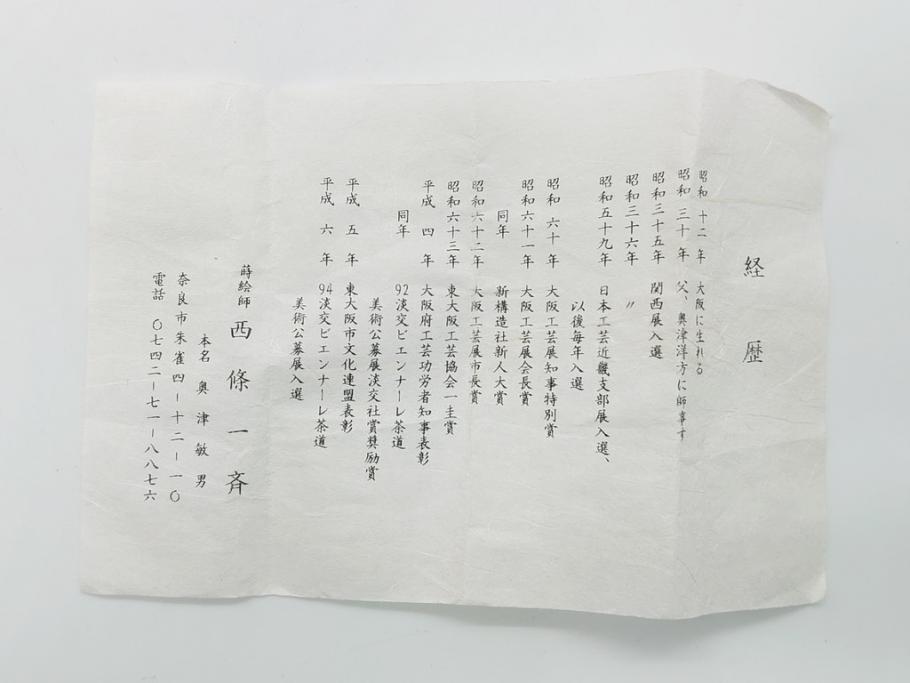 経歴
昭和十二年 大阪に生れる
昭和三十年 父、奥津洋方に師事す
昭和三十五年 関西展入選
昭和三十六年 〃
昭和五十九年 日本工芸近畿支部展入選、
以後毎年入選
昭和六十年 大阪工芸展知事特別賞
昭和六十一年 大阪工芸展会長賞
同年 新構造社新人大賞
昭和六十二年 大阪工芸展市長賞
昭和六十三年 東大阪工芸協会一圭賞
平成四年 大阪府工芸功労者知事表彰
同年 92淡交ビエンナーレ茶道
美術公募展淡交社賞奨励賞
平成五年 東大阪市文化連盟表彰
平成六年 94淡交ビエンナーレ茶道
美術公募展入選
蒔絵師 西條一斉
本名 奥津敏男
奈良市朱雀四ー十二ー一〇
電話 〇七四二ー七一ー八八七六